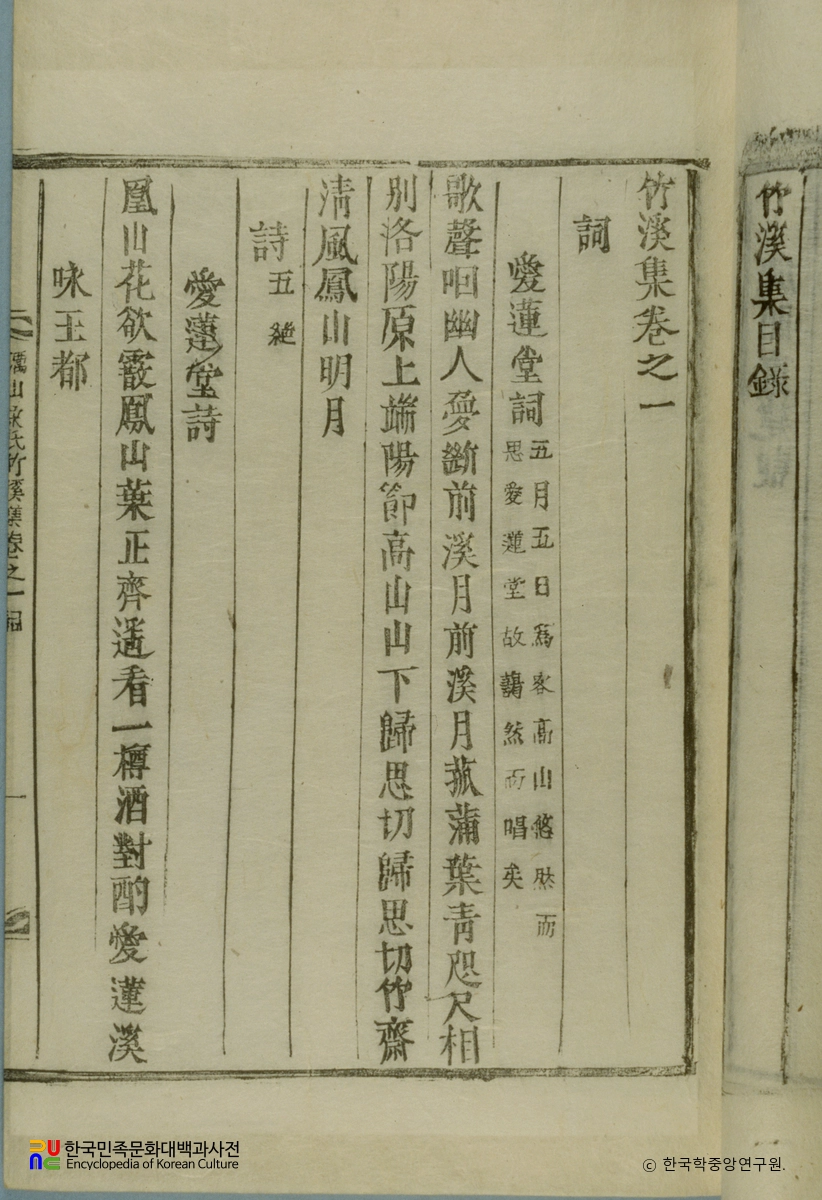 竹溪集目錄
竹溪集卷之一
詞
愛蓮堂詞 五月五日爲客高山悠然而
思愛蓮堂故藹然而唱矣
歌聲咽幽人夢斷前溪月前溪月菰蒲葉靑咫尺相
別洛陽原上端陽節高山山下歸思切歸思切竹齋
淸風鳳山明月
詩 五絶
愛蓮堂詩
凰山花欲霰鳳山葉正齊遥看一樽酒對酌愛蓮溪
咏王都
氏竹溪集卷之一
一
한국민족문화대백과사전
Encyclopedia of Korean Culture
ⓒ 한국학중앙연구원.